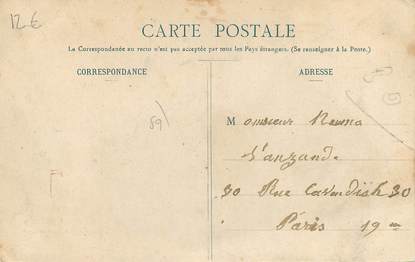 12 €
CARTE POSTALE
La Correspondance au recto n'est pas acceptée par tous les Pays étrangers. (Se renseigner à la Poste.)
CORRESPONDANCE
ADRESSE
89)
Monsieur
30 Rue Cavendish 30
Paris 19 me